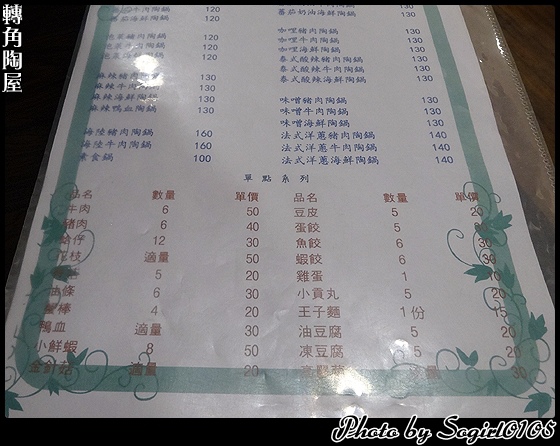 轉角陶屋
牛肉陶鍋 120
海鮮陶鍋 120
泡菜豬肉陶鍋 120
泡菜牛肉陶鍋 120
泡菜海鮮陶鍋 120
麻辣豬肉陶鍋 130
麻辣牛肉陶鍋 130
麻辣海鮮陶鍋 130
麻辣鴨血陶鍋 130
海陸豬肉陶鍋 160
海陸牛肉陶鍋 160
素食鍋 100
蕃茄奶油海鮮陶鍋 130
咖哩豬肉陶鍋 130
咖哩牛肉陶鍋 130
咖哩海鮮陶鍋 130
泰式酸辣豬肉陶鍋 130
泰式酸辣牛肉陶鍋 130
泰式酸辣海鮮陶鍋 130
味噌豬肉陶鍋 130
味噌牛肉陶鍋 130
味噌海鮮陶鍋 130
法式洋蔥豬肉陶鍋 140
法式洋蔥牛肉陶鍋 140
法式洋蔥海鮮陶鍋 140
單點系列
品名 數量 單價 品名 數量 單價
牛肉 6 50 豆皮 5 20
豬肉 6 40 蛋餃 5
蛤仔 12 30 魚餃 6 30
花枝 適量 50 蝦餃 6 30
5 20 雞蛋 1 10
油條 6 30 小貢丸 5 20
蟹棒 4 20 王子麵 1份 15
鴨血 適量 30 油豆腐 5 20
小鮮蝦 8 50 凍豆腐 5 20
金針菇 適量 20 高麗菜 30
Photo by Sogirl0105